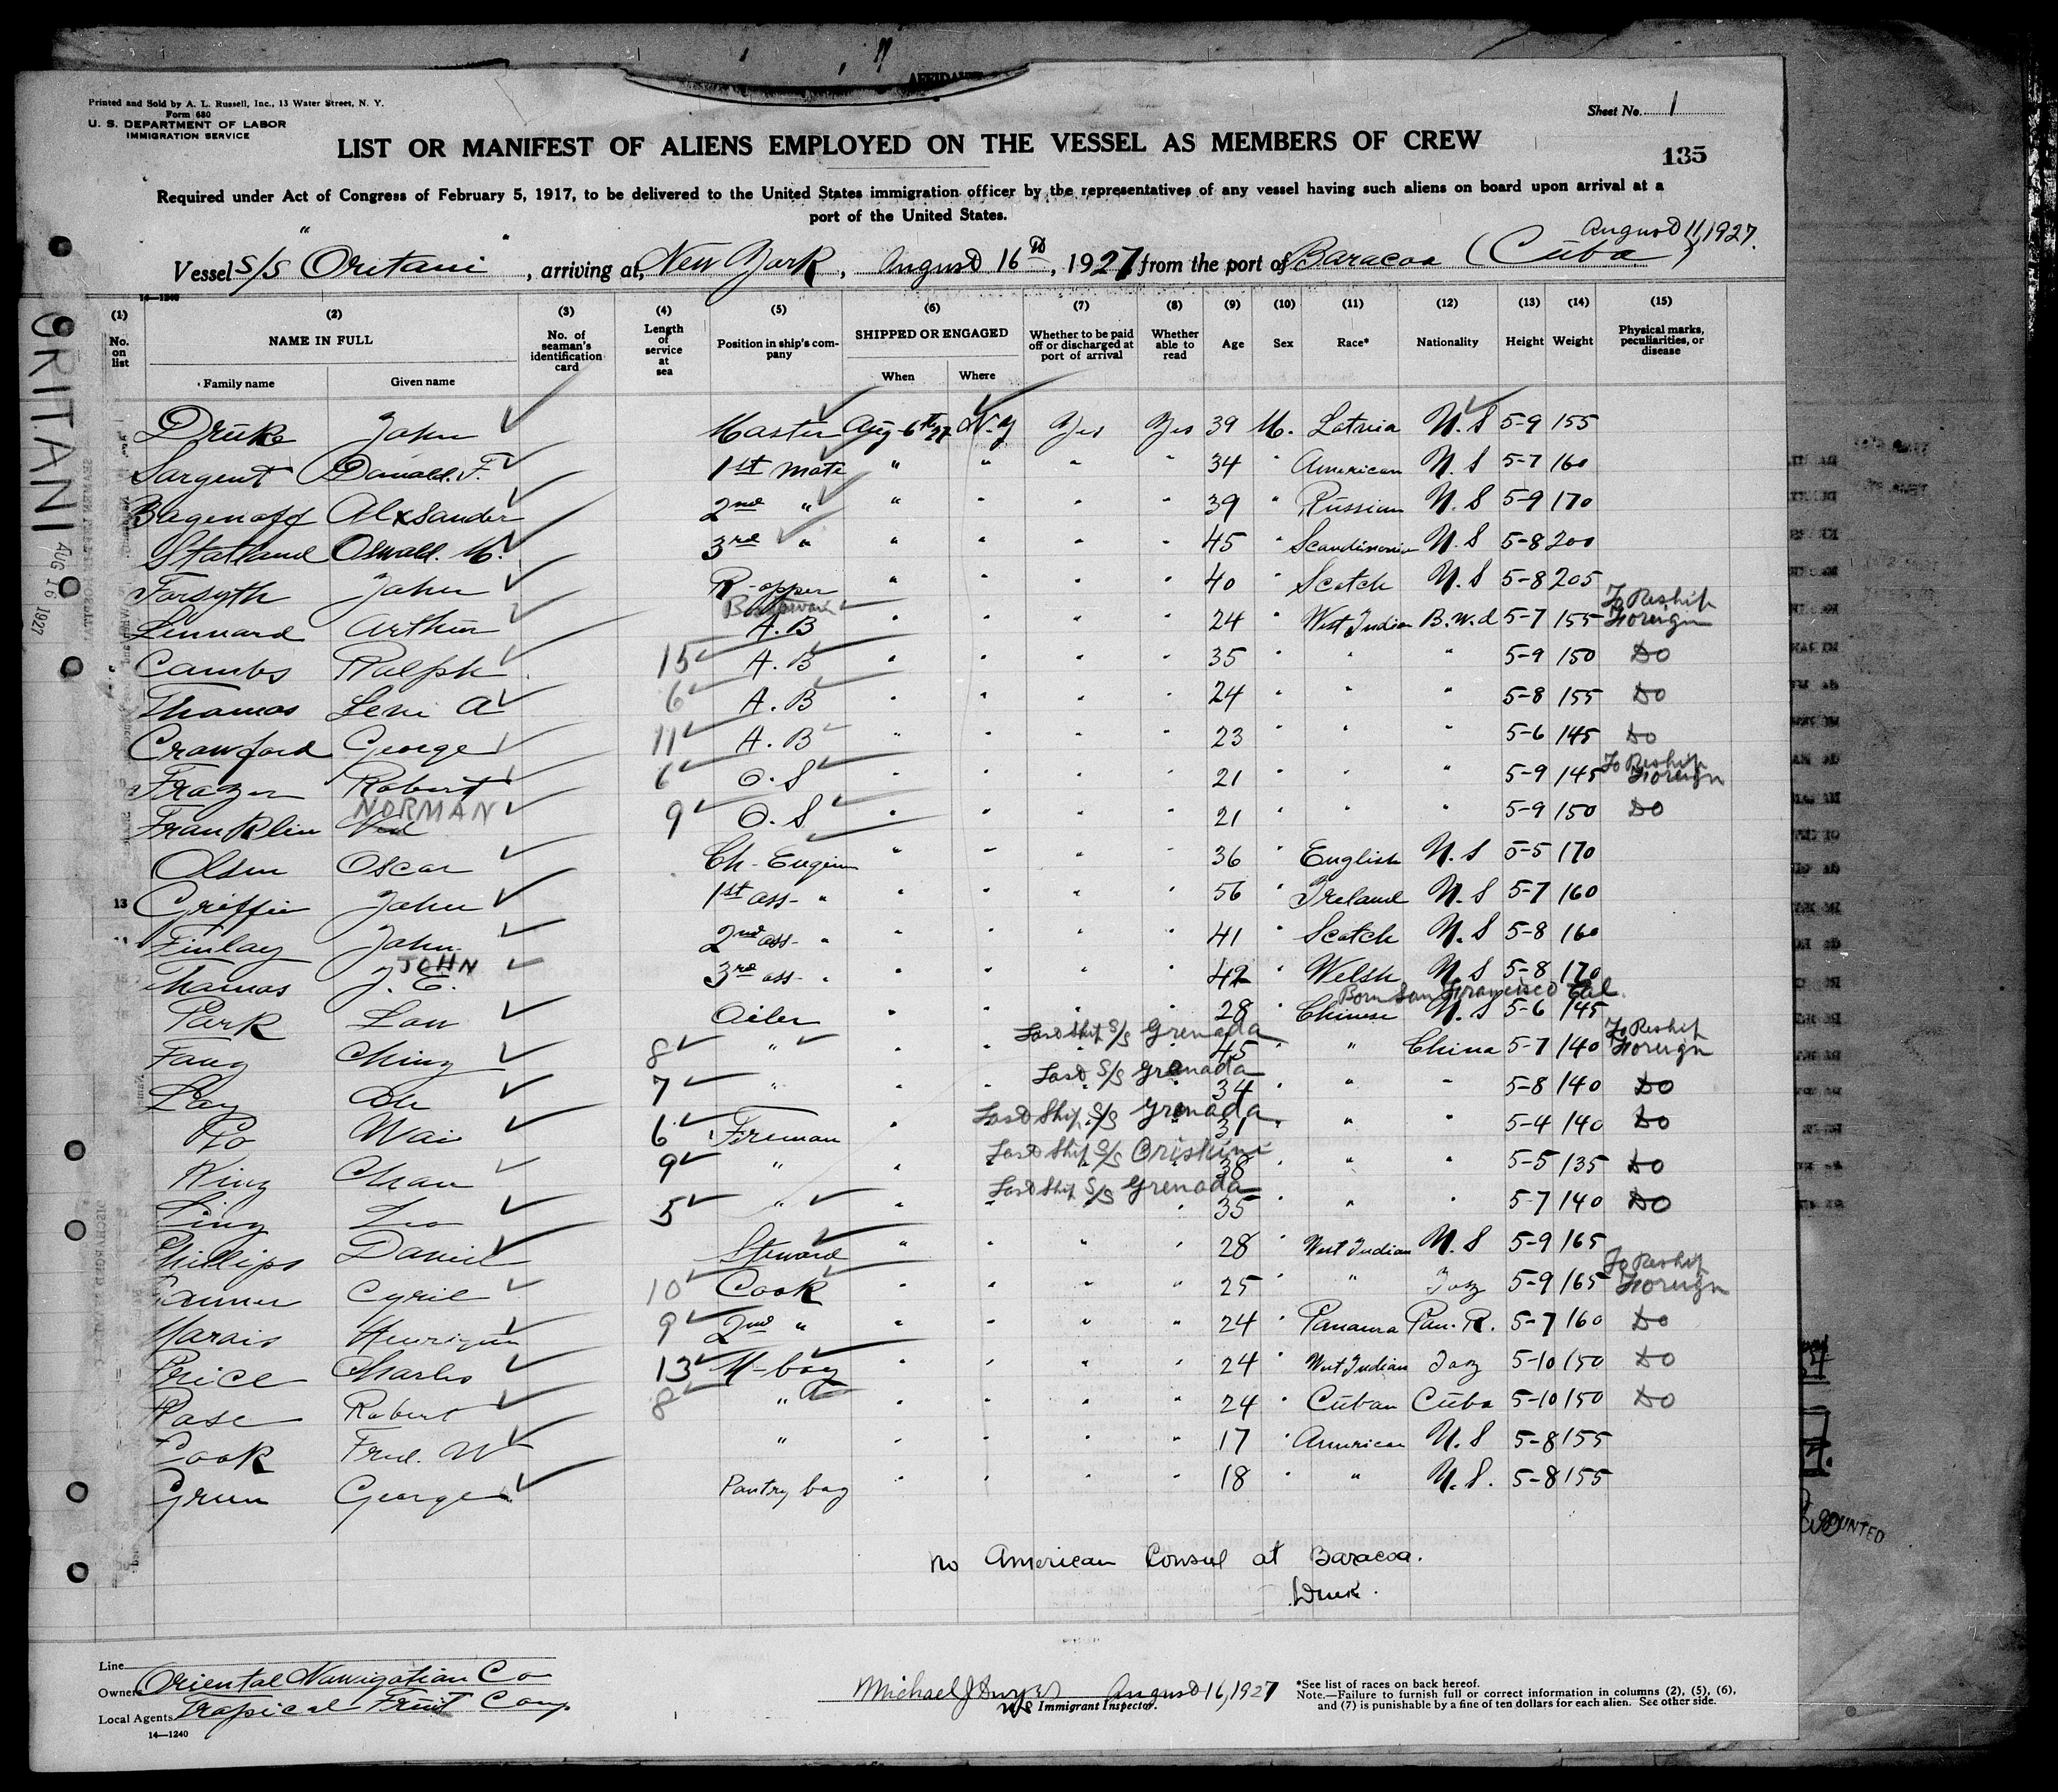 AFFIDAVIT
Printed and Sold by A. L. Russell, Inc., 13 Water Street, N. Y.
Form 680
U. S. DEPARTMENT OF LABOR
IMMIGRATION SERVICE
Sheet No. 1
LIST OR MANIFEST OF ALIENS EMPLOYED ON THE VESSEL AS MEMBERS OF CREW
135
Required under Act of Congress of February 5, 1917, to be delivered to the United States immigration officer by the representatives of any vessel having such aliens on board upon arrival at a
port of the United States.
August 11, 1927.
Vessel S/S "Oritani", arriving at New York, August 16th, 1927 from the port of Baracoa (Cuba)
14—1240
(1) (2) (3) (4) (5) (6) (7) (8) (9) (10) (11) (12) (13) (14) (15)
No. on list
NAME IN FULL
Family name Given name
No. of seaman's identification card
Length of service at sea
Position in ship's company
SHIPPED OR ENGAGED
When Where
Whether to be paid off or discharged at port of arrival
Whether able to read
Age Sex Race* Nationality Height Weight
Physical marks, peculiarities, or disease
Druke John Master Aug 6th 27 N.Y Yes Yes 39 M. Latavia U.S 5-9 155
Sargent Donald. F. 1st mate " " " " 34 " American U.S 5-7 160
Bagenoff Alxsander 2nd " " " " " 39 " Russian U.S 5-9 170
Statland Oswald. M. 3rd " " " " " 45 " Scandinavian U.S 5-8 200
Forsyth John R-opper " " " " 40 " Scotch U.S 5-8 205
Lennard Arthur Boatswain A.B " " " " 24 " West Indian B.W.d 5-7 155 To Reship Foreign
Cambs Ralph 15 A.B " " " " 35 " " " 5-9 150 Do
Thomas Levi A 6 A.B " " " " 24 " " " 5-8 155 Do
Crawford George 11 A.B " " " " 23 " " " 5-6 145 Do
Frazer Robert 6 O.S " " " " 21 " " " 5-9 145 To Reship Foreign
Franklin NORMAN 9 O.S " " " " 21 " " " 5-9 150 Do
Olsen Oscar Ch-Engin " " " " 36 " English U.S 5-5 170
13 Griffin John 1st ass- " " " " " 56 " Ireland U.S 5-7 160
Finlay John 2nd ass- " " " " " 41 " Scotch U.S 5-8 160
Thomas J. E. JOHN 3rd ass- " " " " " 42 " Welsh U.S 5-8 170
Born San Francisco Cal.
Park Lou Oiler " " " " 28 " Chinese U.S 5-6 145
Last Ship S/S Grenada
Fang Ching 8 " " " " " 45 " " China 5-7 140 To Reship Foreign
Last S/S Grenada
Lay Ah 7 " " " " " 34 " " " 5-8 140 Do
Last Ship S/S Grenada
Po Wai 6 Fireman " " " " 31 " " " 5-4 140 Do
Last Ship S/S Oriskini
Wing Chan 9 " " " " " 38 " " " 5-5 135 Do
Last Ship S/S Grenada
Ling Leo 5 " " " " " 35 " " " 5-7 140 Do
Phillips Daniel Steward " " " " 28 " West Indian U.S 5-9 165
Cyril 10 Cook " " " " 25 " " 5-9 165 To Reship Foreign
Marais 9 2nd " " " " " 24 " Panama Pan. R. 5-7 160 Do
Price Charles 13 M-boy " " " " 24 " West Indian 5-10 150 Do
Rose Robert 8 " " " " " 24 " Cuban Cuba 5-10 150 Do
Cook Fred. W " " " " " 17 " American U.S 5-8 155
Green George Pantry boy " " " " 18 " " U.S. 5-8 155
no American Consul at Baracoa.
Druk.
Line
Owners Oriental Navigation Co
Local Agents Tropical Fruit Comp.
14—1240
Michael J Dwyer August 16, 1927
Immigrant Inspector.
*See list of races on back hereof.
Note.—Failure to furnish full or correct information in columns (2), (5), (6),
and (7) is punishable by a fine of ten dollars for each alien. See other side.
ORITANI
AUG 16 1927